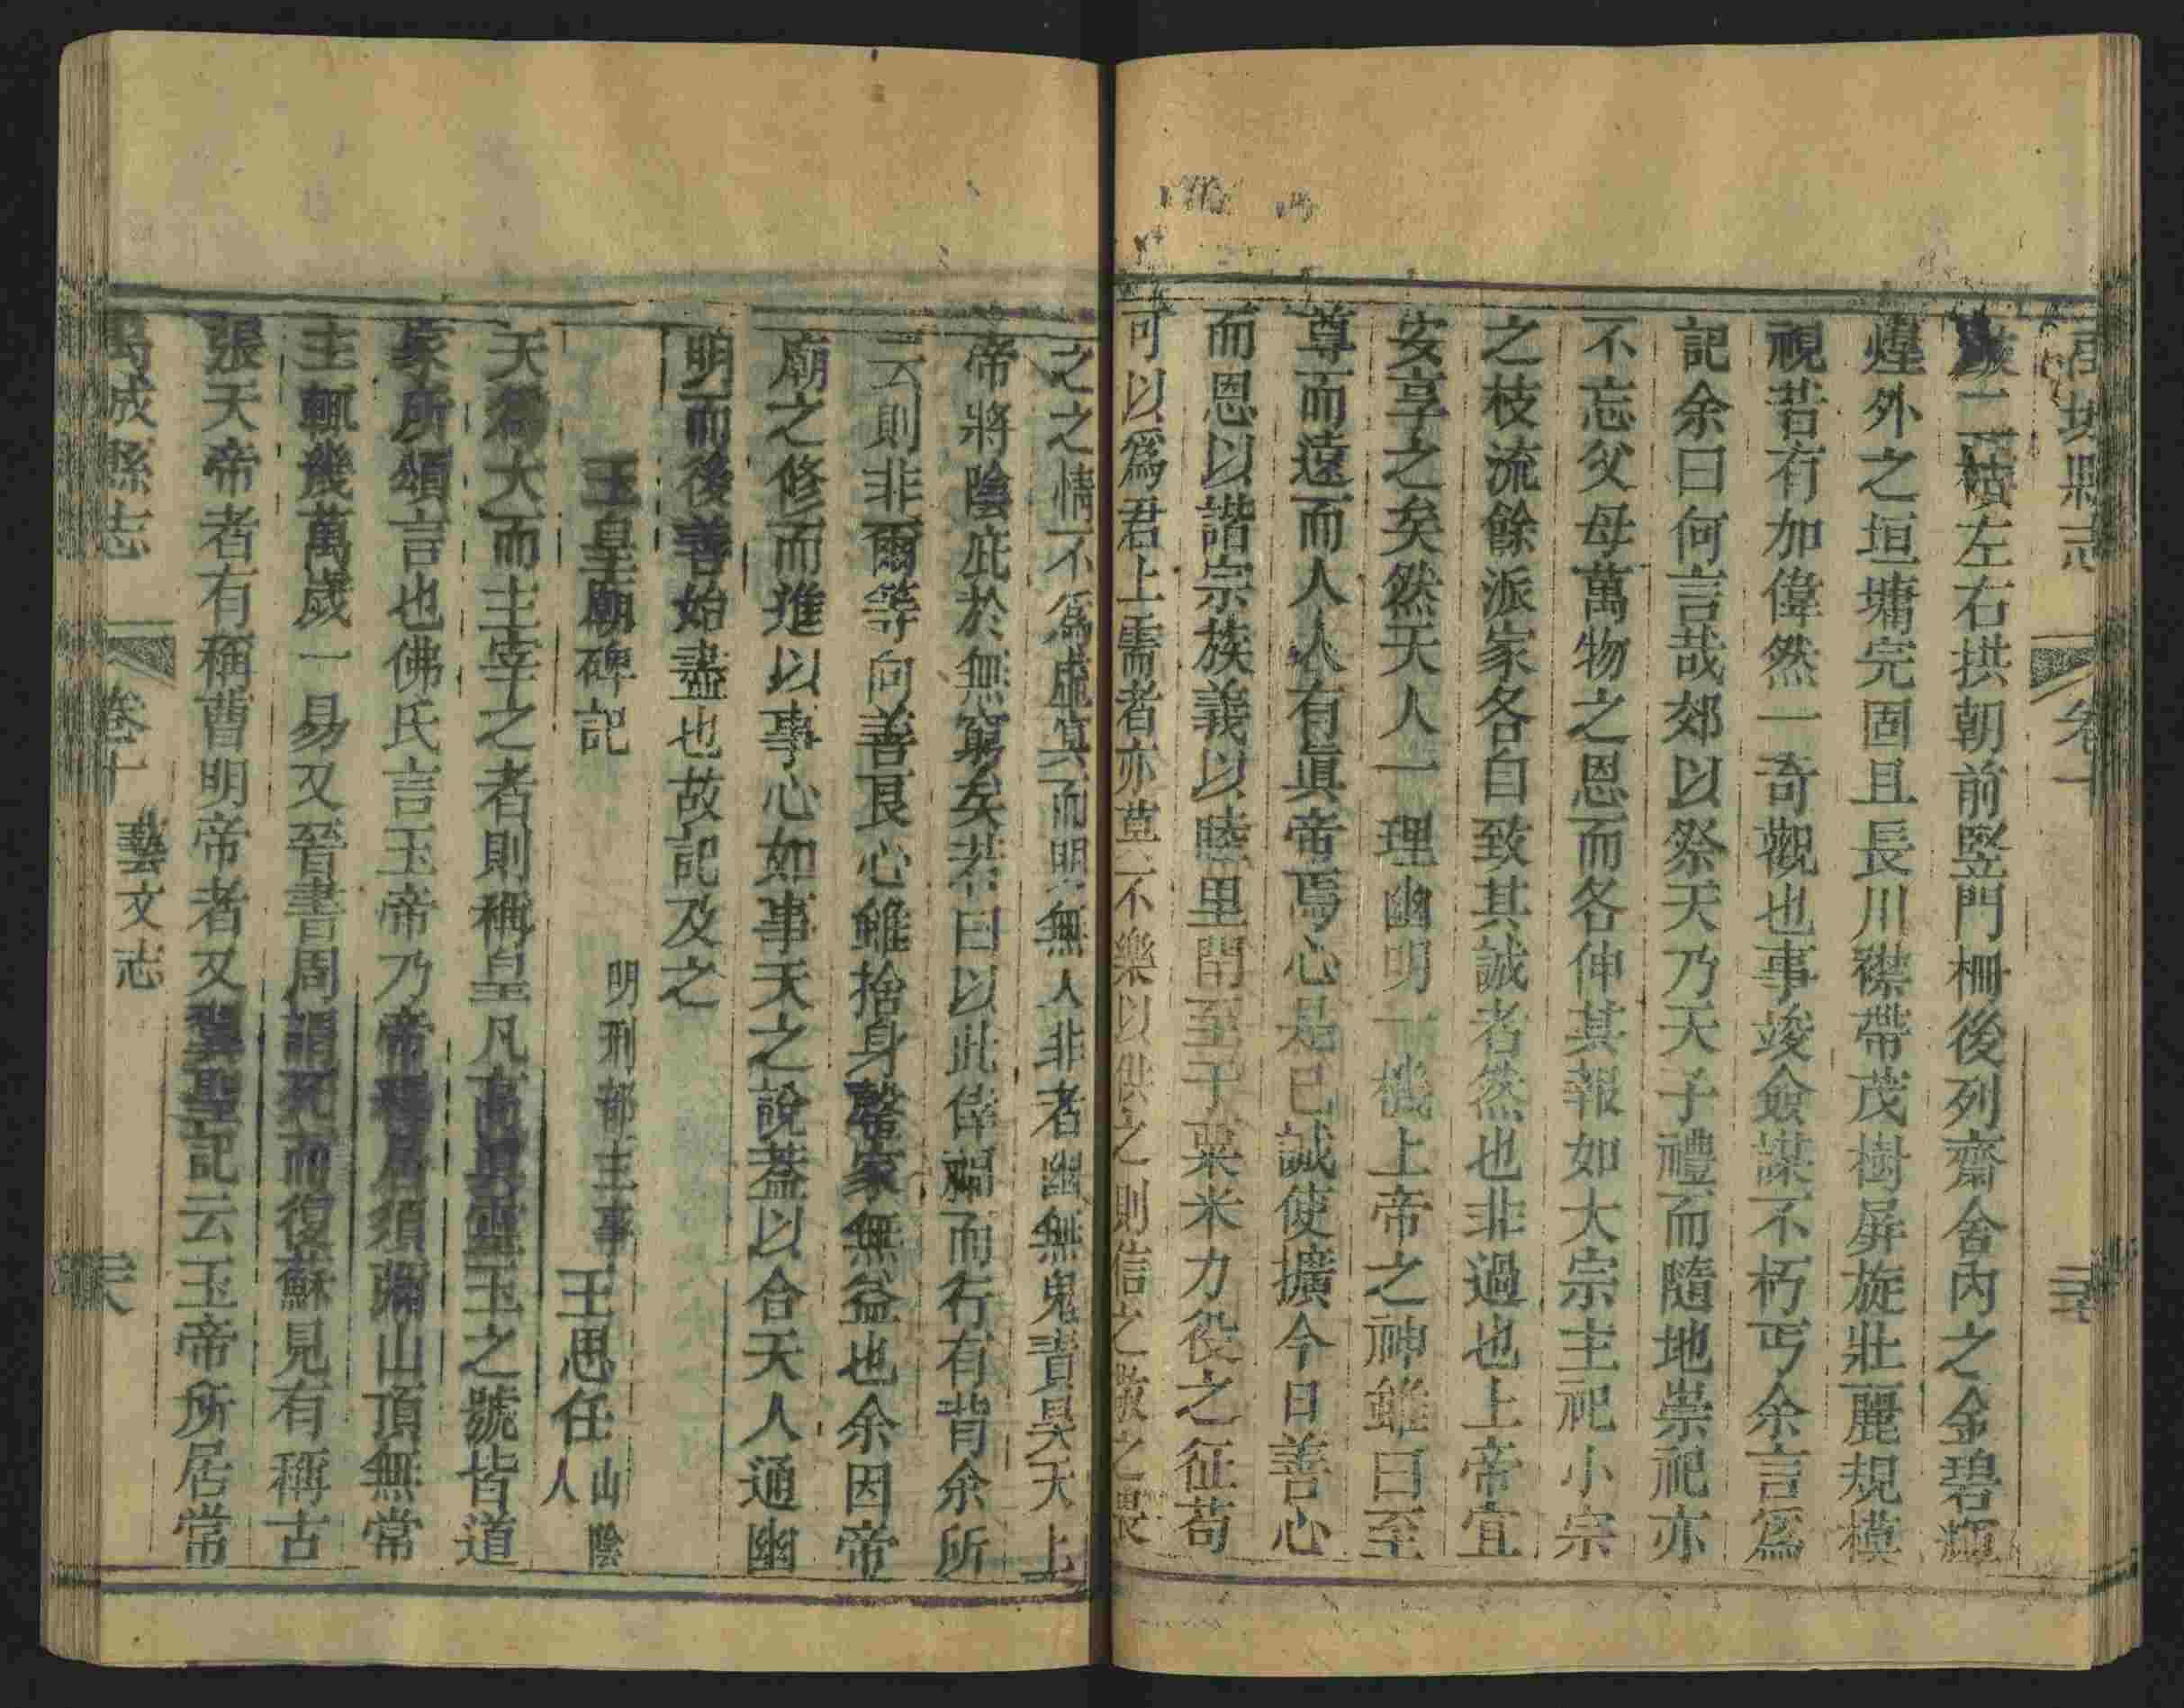 縣志 卷十
二楹左右拱朝前竪門柵後列齋舍內之金碧輝
煌外之垣墉完固且長川襟帶茂樹屏旋壯麗規模
視昔有加偉然一奇觀也事竣僉謀不朽丐余言爲
記余曰何言哉郊以祭天乃天子禮而隨地崇祀亦
不忘父母萬物之恩而各伸其報如大宗主祀小宗
之枝流餘派家各自致其誠者然也非過也上帝宜
安享之矣然天人一理幽明一機上帝之神雖曰至
尊而遠而人人有眞帝焉心是已誠使擴今日善心
而恩以諧宗族義以睦里閈至于粟米力役之征苟
可以爲君上需者亦莫不樂以供之則信之敬之畏
之之情不爲虛寞而明無人非者幽無鬼責昊天上
帝將陰庇於無窮矣若曰以此倖福而行有背余所
云則非爾等向善良心雖捨身罄家無益也余因帝
廟之修而進以事心如事天之說蓋以合天人通幽
明而後善始盡也故記及之
玉皇廟碑記 明刑部主事王思任山陰人
天爲大而主宰之者則稱皇凡高眞靈玉之號皆道
家所頌言也佛氏言玉帝乃帝釋居須彌山頂無常
主輒幾萬歲一易又晉書周謂死而復蘇見有稱古
張天帝者有稱曹明帝者又翼聖記云玉帝所居常
禹城縣志 卷十 藝文志